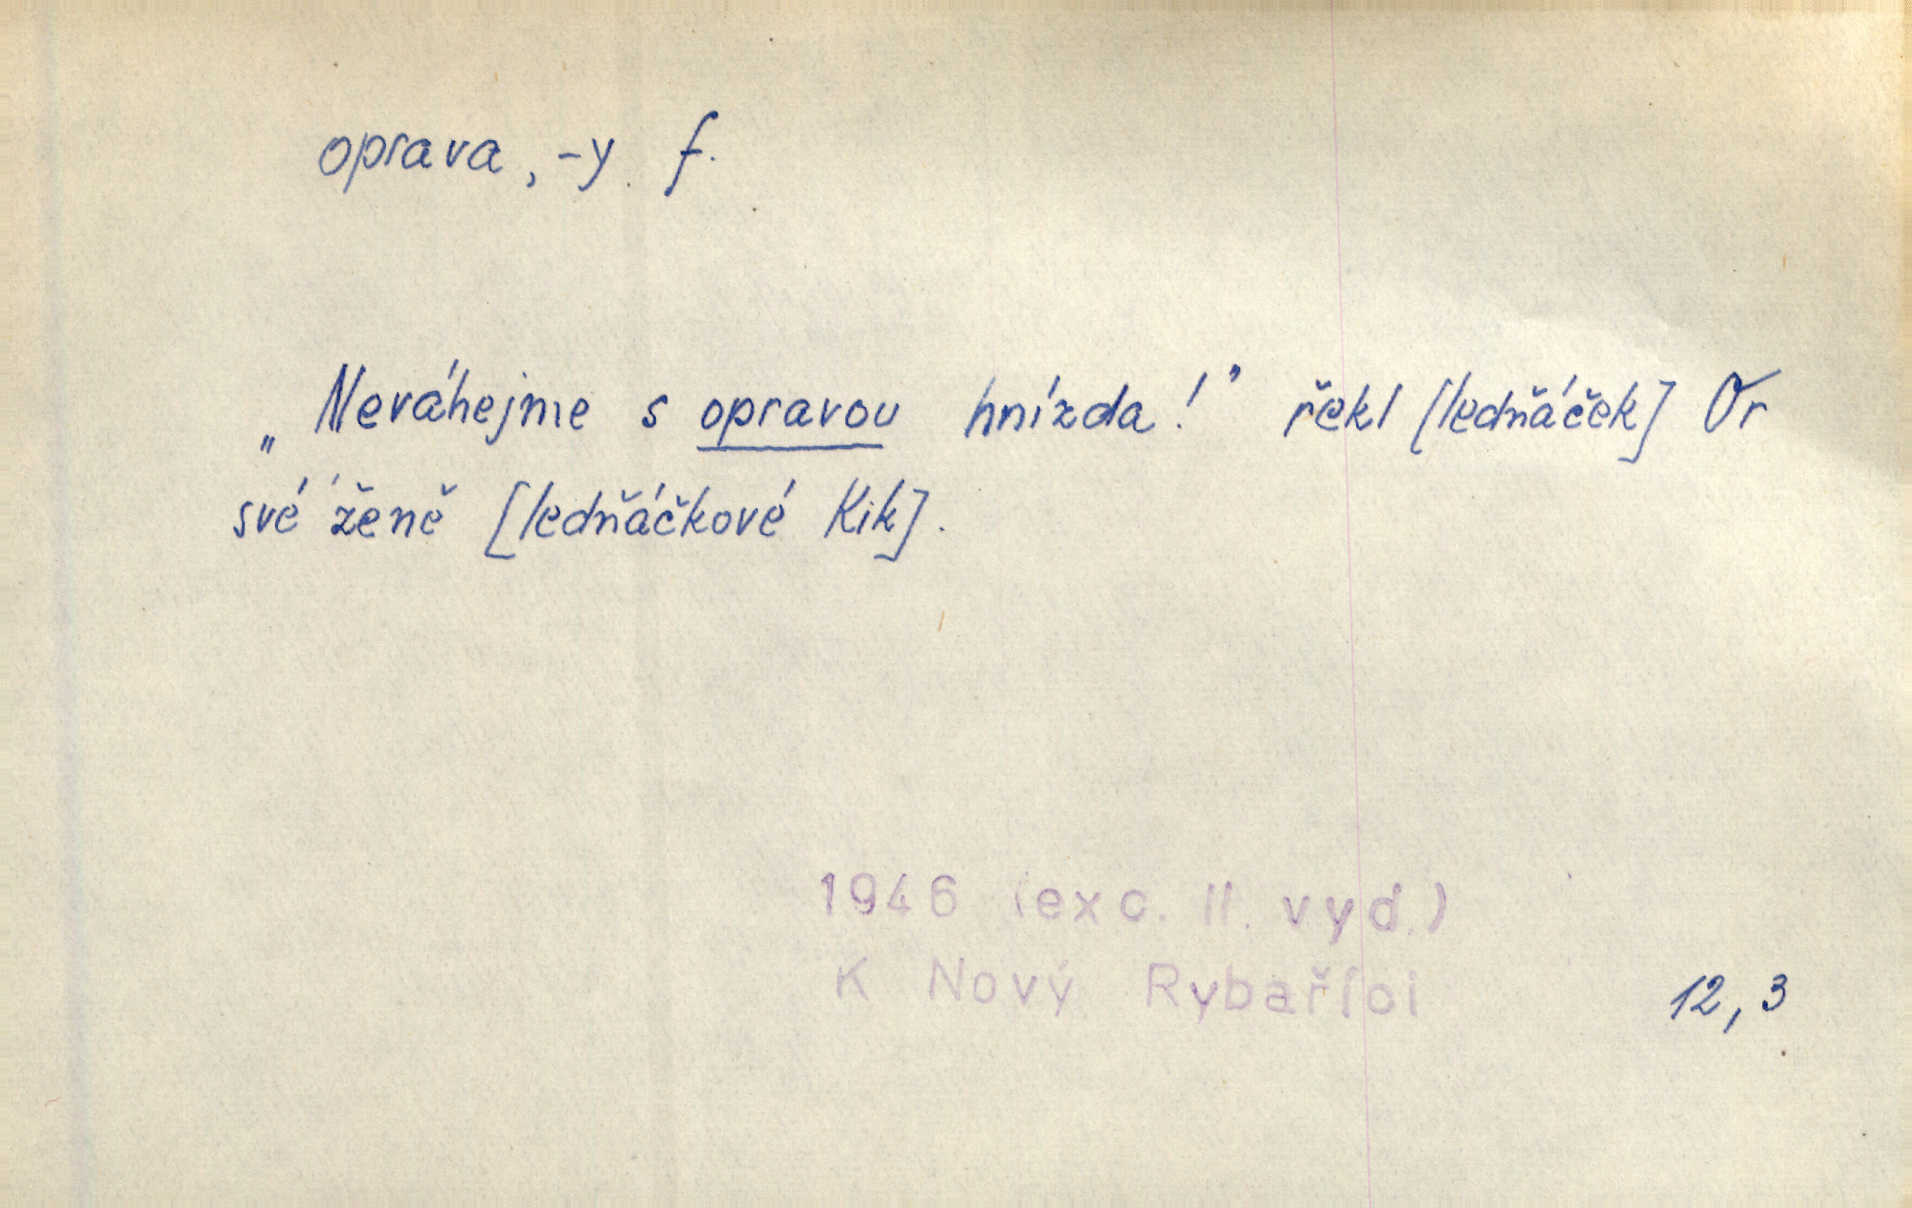 oprava, -y f.
„Neváhejme s opravou hnízda!" řekl [ledňáček] Or
své ženě [ledňáčkové Kik].
1946 (exc. II. vyd.)
K Nový Rybaříci
12, 3